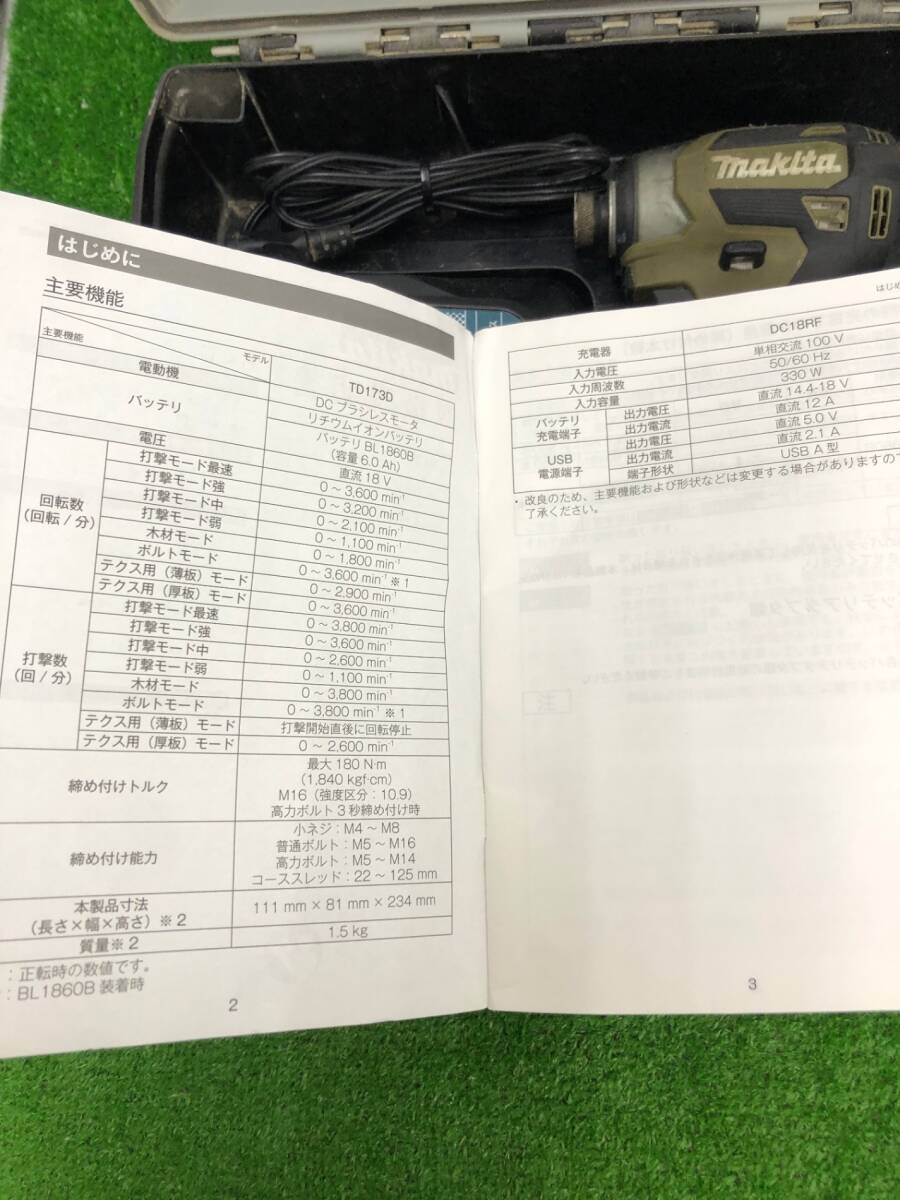 makita
はじめに
主要機能
主要機能 モデル TD173D
電動機 DC ブラシレスモータ
バッテリ リチウムイオンバッテリ
バッテリ BL1860B
(容量 6.0 Ah)
電圧 直流 18 V
回転数
(回転 / 分)
打撃モード最速 0 ～ 3,600 min-1
打撃モード強 0 ～ 3,200 min-1
打撃モード中 0 ～ 2,100 min-1
打撃モード弱 0 ～ 1,100 min-1
木材モード 0 ～ 1,800 min-1
ボルトモード 0 ～ 3,600 min-1 ※ 1
テクス用（薄板）モード 0 ～ 2,900 min-1
テクス用（厚板）モード 0 ～ 3,600 min-1
打撃数
(回 / 分)
打撃モード最速 0 ～ 3,800 min-1
打撃モード強 0 ～ 3,600 min-1
打撃モード中 0 ～ 2,600 min-1
打撃モード弱 0 ～ 1,100 min-1
木材モード 0 ～ 3,800 min-1
ボルトモード 0 ～ 3,800 min-1 ※ 1
テクス用（薄板）モード 打撃開始直後に回転停止
テクス用（厚板）モード 0 ～ 2,600 min-1
締め付けトルク 最大 180 N·m
(1,840 kgf·cm)
M16（強度区分：10.9）
高力ボルト 3 秒締め付け時
締め付け能力 小ネジ：M4 ～ M8
普通ボルト：M5 ～ M16
高力ボルト：M5 ～ M14
コーススレッド：22 ～ 125 mm
本製品寸法
(長さ×幅×高さ) ※ 2 111 mm × 81 mm × 234 mm
質量※ 2 1.5 kg
：正転時の数値です。
：BL1860B 装着時
2
はじめ
充電器 DC18RF
入力電圧 単相交流 100 V
入力周波数 50/60 Hz
入力容量 330 W
バッテリ
充電端子
出力電圧 直流 14.4-18 V
出力電流 直流 12 A
USB
電源端子
出力電圧 直流 5.0 V
出力電流 直流 2.1 A
端子形状 USB A 型
・ 改良のため、主要機能および形状などは変更する場合がありますので
了承ください。
3